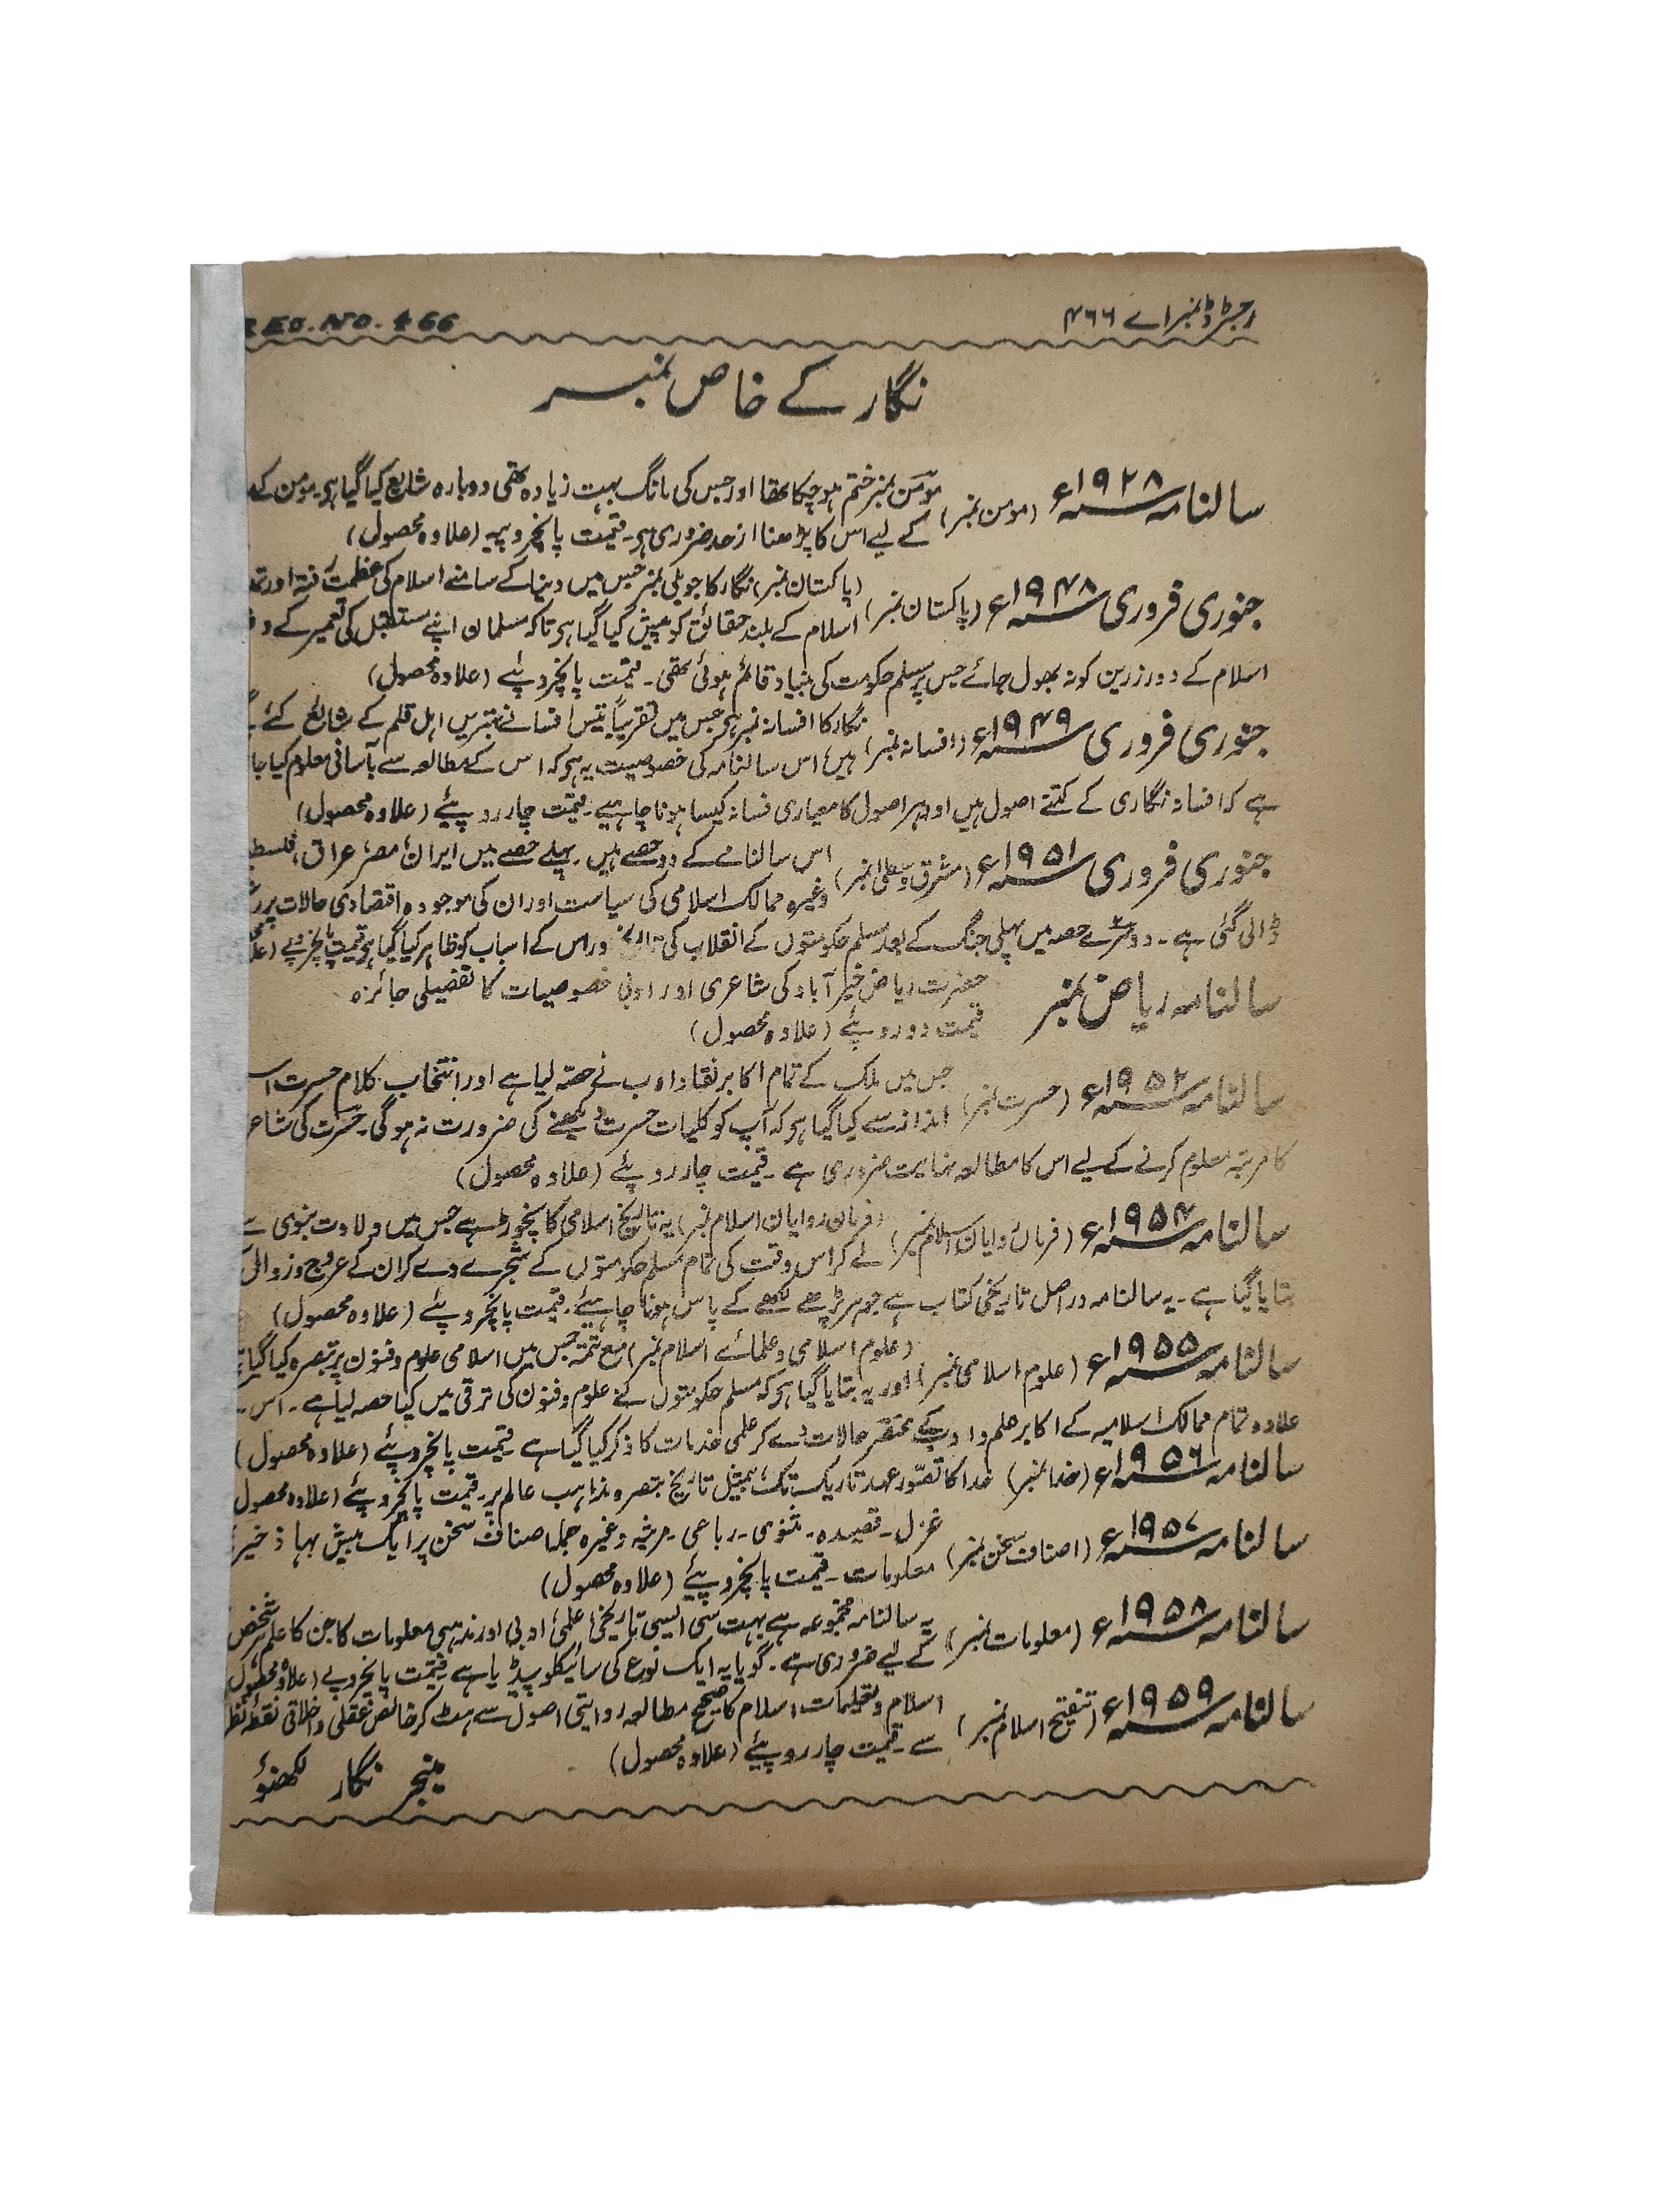 رجسٹرڈ نمبر اے ۴۶۶
REG. NO. 466
نگار کے خاص نمبر
سالنامہ ۱۹۲۸ء (مومن نمبر) مومن نمبر ختم ہوچکا تھا اور جس کی مانگ بہت زیادہ تھی دوبارہ شایع کیا گیا ہی۔ مومن کے
کے لیے اس کا پڑھنا ازحد ضروری ہی۔ قیمت پانچروپیہ (علاوہ محصول)
جنوری فروری ۱۹۴۸ء (پاکستان نمبر) (پاکستان نمبر) نگار کا جوبلی نمبر جس میں دنیا کے سامنے اسلام کی عظمت رفتہ اور
اسلام کے بلند حقائق کو پیش کیا گیا ہی تاکہ مسلمان اپنے مستقبل کی تعمیر کے
اسلام کے دور زرین کو نہ بھول جائے جس پر مسلم حکومت کی بنیاد قائم ہوئی تھی۔ قیمت پانچروپئے (علاوہ محصول)
جنوری فروری ۱۹۴۹ء (افسانہ نمبر) نگار کا افسانہ نمبر ہی جس میں تقریباً تیس افسانے بہترین اہل قلم کے شایع کئے
ہیں، اس سالنامہ کی خصوصیت یہ ہی کہ اس کے مطالعہ سے بآسانی معلوم کیا جا
ہے کہ افسانہ نگاری کے کتنے اصول ہیں اور ہر اصول کا معیاری فسانہ کیسا ہونا چاہیے۔ قیمت چار روپئے (علاوہ محصول)
جنوری فروری ۱۹۵۱ء (مشرق وسطیٰ نمبر) اس سالنامے کے دو حصے ہیں۔ پہلے حصے میں ایران، مصر، عراق،
وغیرہ ممالک اسلامی کی سیاست اور ان کی موجودہ اقتصادی حالات پر
ڈالی گئی ہے۔ دوسرے حصہ میں پہلی جنگ کے بعد مسلم حکومتوں کے انقلاب کی تاریخ اور اس کے اسباب کو ظاہر کیا گیا ہی قیمت پانچروپے
سالنامہ ریاض نمبر حضرت ریاض خیرآباد کی شاعری اور ادبی خصوصیات کا تفصیلی جائزہ
قیمت دو روپئے (علاوہ محصول)
سالنامہ ۱۹۵۲ء (حسرت نمبر) جس میں ملک کے تمام اکابر نقاد ادب نے حصہ لیا ہے اور انتخاب کلام حسرت
انداز سے کیا گیا ہی کہ آپ کو کلیات حسرت دیکھنے کی ضرورت نہ ہوگی۔ حسرت کی
کا مرتبہ معلوم کرنے کے لیے اس کا مطالعہ نہایت ضروری ہے۔ قیمت چار روپئے (علاوہ محصول)
سالنامہ ۱۹۵۴ء (فرمانروایان اسلام نمبر) (فرمان روایان اسلام نمبر) یہ تاریخ اسلامی کا نچوڑ ہے جس میں ولادت نبوی سے
لے کر اس وقت کی تمام مسلم حکومتوں کے شجرے دے کر ان کے عروج و زوال
بتایا گیا ہے۔ یہ سالنامہ دراصل تاریخی کتاب ہے جو ہر پڑھے لکھے کے پاس ہونا چاہیئے۔ قیمت پانچروپئے (علاوہ محصول)
سالنامہ ۱۹۵۵ء (علوم اسلامی نمبر) (علوم اسلامی و علمائے اسلام نمبر) مع تتمہ جس میں اسلامی علوم و فنون پر تبصرہ کیا گیا
اور یہ بتایا گیا ہی کہ مسلم حکومتوں نے علوم و فنون کی ترقی میں کیا حصہ لیا ہے۔ اس
علاوہ تمام ممالک اسلامیہ کے اکابر علم و ادب کے مختصر حالات دے کر علمی خدمات کا ذکر کیا گیا ہے قیمت پانچروپئے (علاوہ محصول)
سالنامہ ۱۹۵۶ء (خدا نمبر) خدا کا تصور عہد تاریک تک، بمیثل تاریخ تبصرہ مذاہب عالم پر۔ قیمت پانچروپئے (علاوہ محصول
سالنامہ ۱۹۵۷ء (اصناف سخن نمبر) غزل۔ قصیدہ۔ مثنوی۔ رباعی۔ مرثیہ وغیرہ جملہ اصناف سخن پر ایک بیش بہا ذخیر
معلومات۔ قیمت پانچروپئے (علاوہ محصول)
سالنامہ ۱۹۵۸ء (معلومات نمبر) یہ سالنامہ مجموعہ ہے بہت سی ایسی تاریخی، علمی، ادبی اور مذہبی معلومات کا جن کا علم ہر شخص
کے لیے ضروری ہے۔ گویا یہ ایک نوع کی سائیکلوپیڈیا ہے۔ قیمت پانچروپے (علاوہ محصول
سالنامہ ۱۹۵۹ء (تنقیح اسلام نمبر) اسلام و تعلیمات اسلام کا صحیح مطالعہ روایتی اصول سے ہٹ کر خالص عقلی و اخلاقی نقطۂ نظر
سے۔ قیمت چار روپئے (علاوہ محصول)
منیجر نگار لکھنؤ